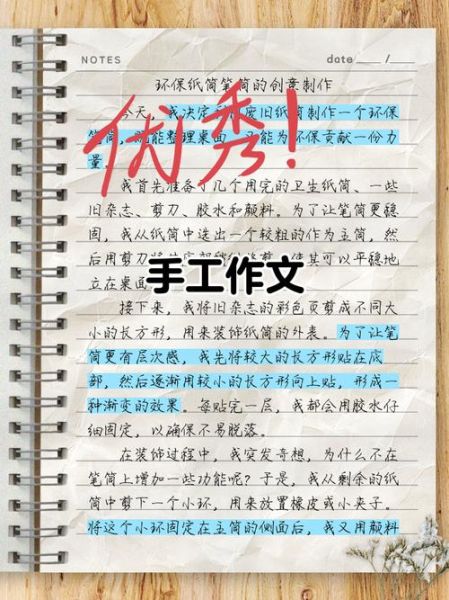 NOTES
date ___/___
环保纸筒笔筒的创意制作
优秀!
今天，我决定 废旧纸筒制作一个环保
笔筒，既能整理桌面， 能为环保贡献一份力
量。
我首先准备了几个用完的卫生纸筒、一些
旧杂志、剪刀、胶水和颜料。为了让笔筒更稳
固，我从纸筒中选出一个较粗的作为主筒，然
后用剪刀 使其可以平稳地
手工作文
立在桌面
接下来，我将旧杂志的彩色页剪成不同大
小的长方形，用来装饰纸筒的外表。为了让笔
筒更有层次感，我先将较大的长方形贴在底
部，然后逐渐用较小的长方形向上贴，形成一
种渐变的效果。每贴完一层，我都会用胶水仔
细固定，以确保不易脱落。
在装饰过程中，我突发奇想，为什么不在
笔筒上增加一些功能呢？于是，我从剩余的纸
筒中剪下一个小环，用来放置橡皮或小夹子。
将这个小环固定在主筒的侧面后，我又用颜料